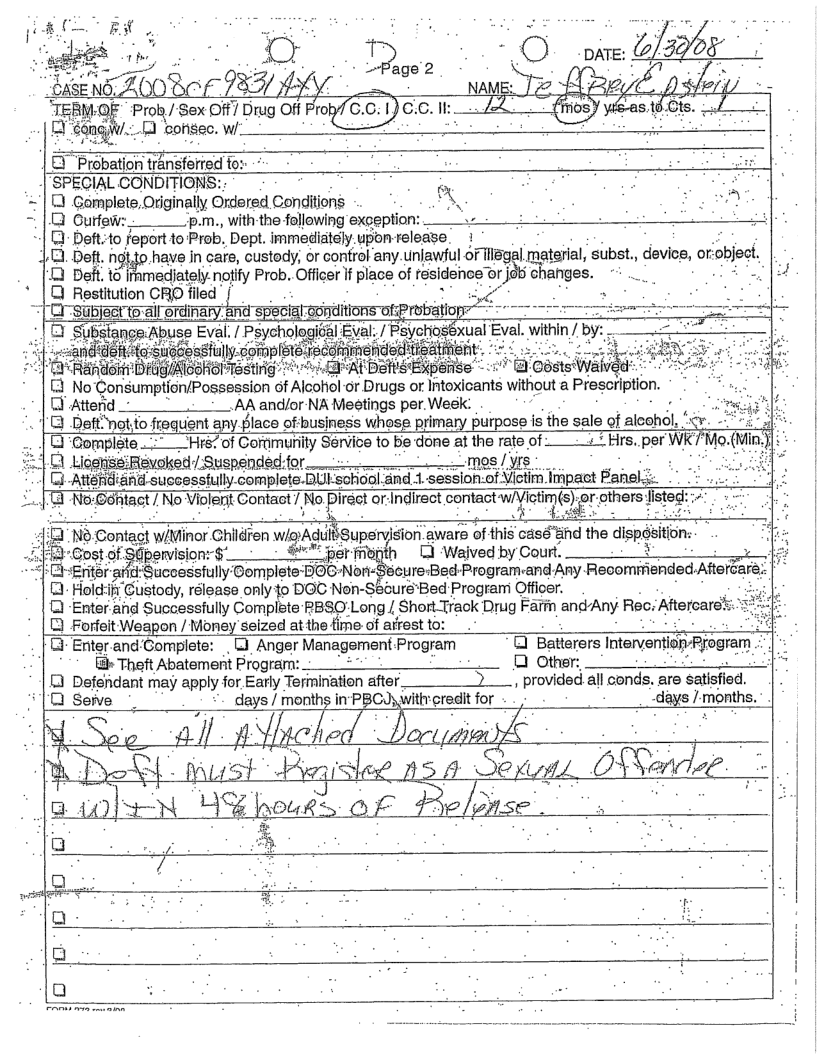 Page 2
DATE: 6/30/08
CASE NO. 2008CF9831AXX NAME: Jeffrey Epstein
TERM OF Prob / Sex Off / Drug Off Prob / C.C. I / C.C. II: 12 mos / yrs as to Cts. 1
❑ conc w/ ❑ consec. w/
❑ Probation transferred to:
SPECIAL CONDITIONS:
❑ Complete Originally Ordered Conditions
❑ Curfew: p.m., with the following exception:
❑ Deft. to report to Prob. Dept. immediately upon release
❑ Deft. not to have in care, custody, or control any unlawful or illegal material, subst., device, or object.
❑ Deft. to immediately notify Prob. Officer if place of residence or job changes.
❑ Restitution CRO filed
❑ Subject to all ordinary and special conditions of Probation
❑ Substance Abuse Eval. / Psychological Eval. / Psychosexual Eval. within / by:
and deft. to successfully complete recommended treatment
❑ Random Drug/Alcohol Testing ❑ At Deft's Expense ❑ Costs Waived
❑ No Consumption/Possession of Alcohol or Drugs or Intoxicants without a Prescription.
❑ Attend AA and/or NA Meetings per Week.
❑ Deft. not to frequent any place of business whose primary purpose is the sale of alcohol.
❑ Complete Hrs. of Community Service to be done at the rate of Hrs. per Wk / Mo. (Min.)
❑ License Revoked / Suspended for mos / yrs
❑ Attend and successfully complete DUI school and 1 session of Victim Impact Panel
❑ No Contact / No Violent Contact / No Direct or Indirect contact w/Victim(s) or others listed:
❑ No Contact w/Minor Children w/o Adult Supervision aware of this case and the disposition.
❑ Cost of Supervision: $ per month ❑ Waived by Court.
❑ Enter and Successfully Complete DOC Non-Secure Bed Program and Any Recommended Aftercare.
❑ Hold in Custody, release only to DOC Non-Secure Bed Program Officer.
❑ Enter and Successfully Complete PBSO Long / Short Track Drug Farm and Any Rec. Aftercare.
❑ Forfeit Weapon / Money seized at the time of arrest to:
❑ Enter and Complete: ❑ Anger Management Program ❑ Batterers Intervention Program
❑ Theft Abatement Program: ❑ Other:
❑ Defendant may apply for Early Termination after , provided all conds. are satisfied.
❑ Serve days / months in PBCJ, with credit for days / months.
See All Attached Documents
Deft must Register AS A Sexual Offender
❑ W/IN 48 hours OF Release.